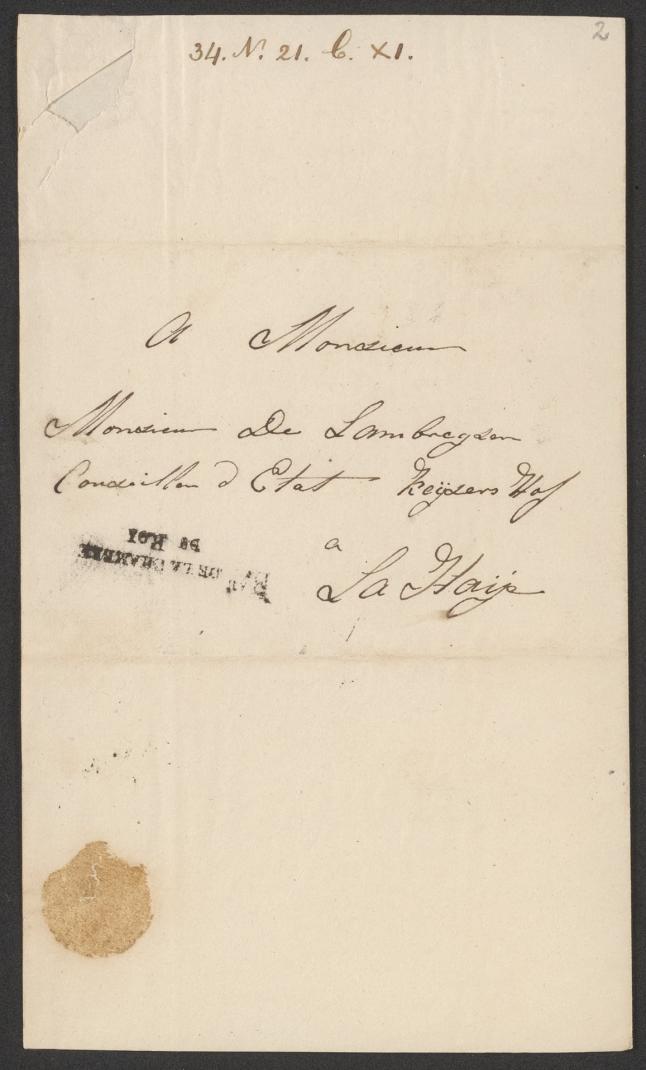 2
34. N. 21. C. XI.
A Monsieur
Monsieur De Lambregsen
Conseiller d Etat Keÿsers Hof
a
La Haÿe
DE LA CHAMBRE
DU ROI